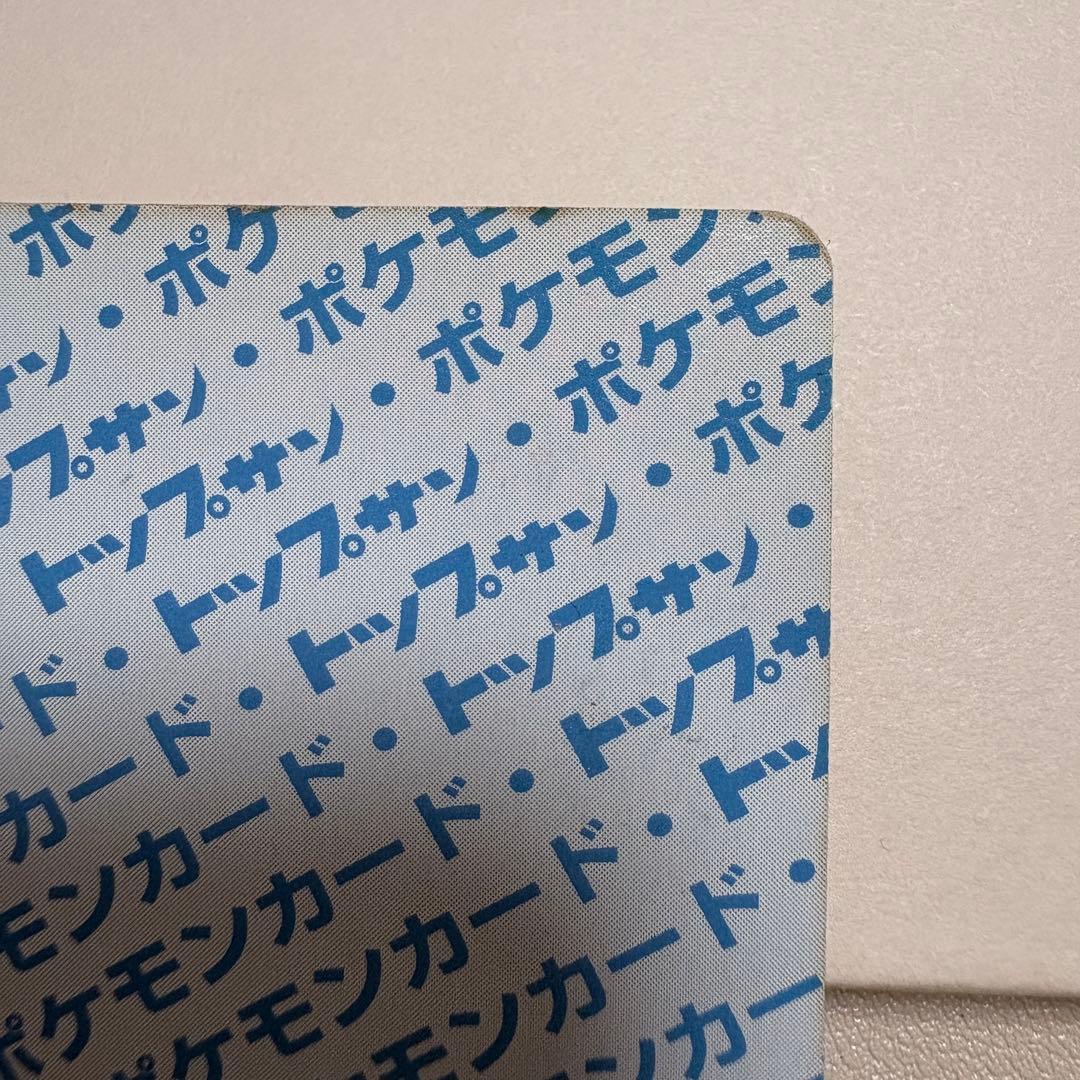 ポケ
ン・ポケ
トップサン・ポケモ
トップサン・ポケモン・
ド・トップサン・ポケモン
カード・トップサン・ポケ
モンカード・トップサン・
ポケモンカード・トップサ
ポケモンカード・トッ
ケモンカード・
ンカー